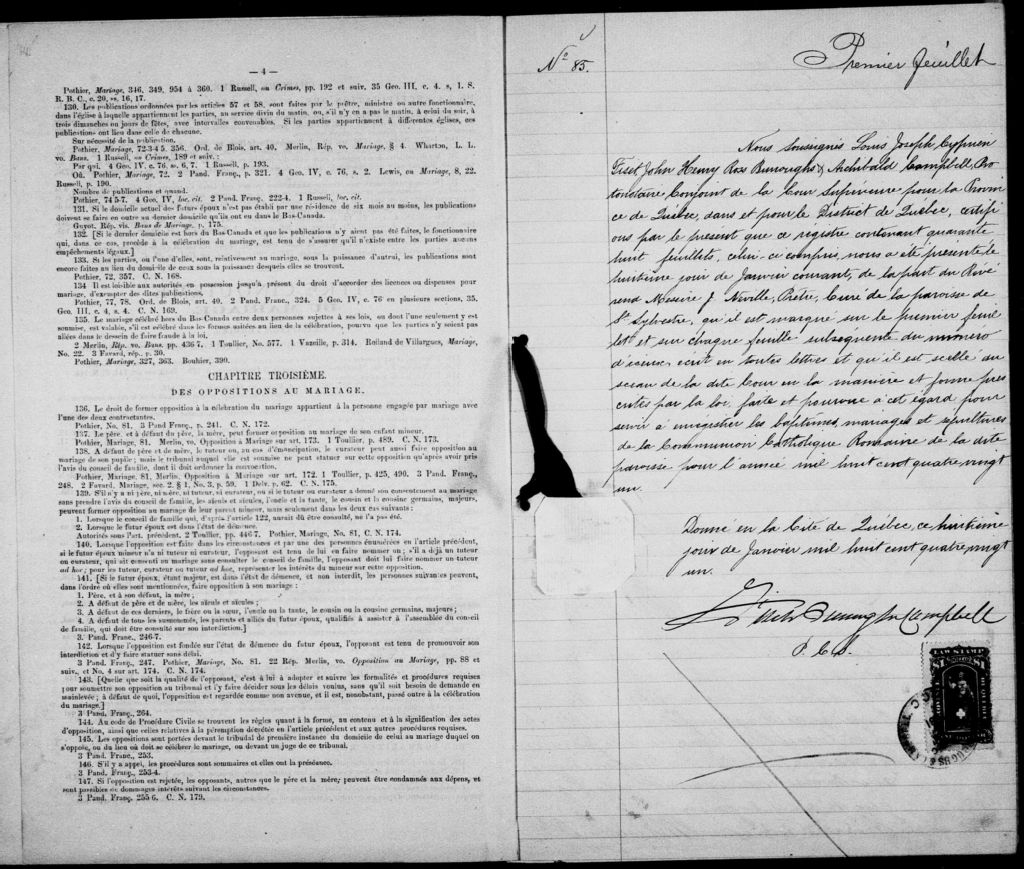 — 4 —
Pothier, Mariage, 346, 349, 954 à 360. 1 Russell, on Crimes, pp. 192 et suiv. 35 Geo. III, c. 4. s, 1. S.
R. B. C., c. 20, ss. 16, 17.
130. Les publications ordonnées par les articles 57 et 58, sont faites par le prêtre, ministre ou autre fonctionnaire,
dans l'église à laquelle appartiennent les parties, au service divin du matin, ou, s'il n'y en a pas le matin, à celui du soir, à
trois dimanches ou jours de fêtes, avec intervalles convenables. Si les parties appartiennent à différentes églises, ces
publications ont lieu dans celle de chacune.
Sur nécessité de la publication.
Pothier, Mariage, 72-3-4 5. 356. Ord. de Blois, art. 40. Merlin, Rép. vo. Mariage, § 4. Wharton, L. L.
vo. Bans. 1 Russell, on Crimes, 189 et suiv. :
Par qui. 4 Geo. IV, c. 76, ss. 6, 7. 1 Russell, p. 193.
Où. Pothier, Mariage, 72. 2 Pand. Franç., p. 321. 4 Geo. IV, c. 76, s. 2. Lewis, on Mariage, 8, 22.
Russell, p. 190.
Nombre de publications et quand.
Pothier, 74 5-7. 4 Geo. IV, loc. cit. 2 Pand. Franç. 222-4. 1 Russell, loc. cit.
131. Si le domicile actuel des futurs époux n'est pas établi par une résidence de six mois au moins, les publications
doivent se faire en outre au dernier domicile qu'ils ont eu dans le Bas-Canada.
Guyot, Rép. vis. Bans de Mariage, p. 175.
132. [Si le dernier domicile est hors du Bas Canada et que les publications n'y aient pas été faites, le fonctionnaire
qui, dans ce cas, procède à la célébration du mariage, est tenu de s'assurer qu'il n'existe entre les parties aucuns
empêchements légaux.]
133. Si les parties, ou l'une d'elles, sont, relativement au mariage, sous la puissance d'autrui, les publications sont
encore faites au lieu du domicile de ceux sous la puissance desquels elles se trouvent.
Pothier, 72, 357. C. N. 168.
134 Il est loisible aux autorités en possession jusqu'à présent du droit d'accorder des licences ou dispenses pour
mariage, d'exempter des dites publications.
Pothier, 77, 78. Ord. de Blois, art. 40. 2 Pand. Franc., 324. 5 Geo. IV, c. 76 en plusieurs sections, 35.
Geo. III, c. 4, s. 4. C. N. 169.
135. Le mariage célébré hors du Bas Canada entre deux personnes sujettes à ses lois, ou dont l'une seulement y est
soumise, est valable, s'il est célébré dans les formes usitées au lieu de la célébration, pourvu que les parties n'y soient pas
allées dans le dessein de faire fraude à la loi.
2 Merlin, Rép. vo. Bans. pp. 436-7. 1 Toullier, No. 577. 1 Vazeille, p. 314. Rolland de Villargues, Mariage,
No. 22. 3 Favard, rép. p. 30.
Pothier, Mariage, 327, 363. Bouhier, 390.
CHAPITRE TROISIÈME.
DES OPPOSITIONS AU MARIAGE.
136. Le droit de former opposition à la célébration du mariage appartient à la personne engagée par mariage avec
l'une des deux contractantes.
Pothier, No. 81. 3 Pand Franç., p. 241. C. N. 172.
137. Le père, et à défaut du père, la mère, peut former opposition au mariage de son enfant mineur.
Pothier, Mariage, 81. Merlin, vo. Opposition à Mariage sur art. 173. 1 Toullier, p. 489. C. N. 173.
138. A défaut de père et de mère, le tuteur ou, au cas d'émancipation, le curateur peut aussi faire opposition au
mariage de son pupille; mais le tribunal auquel elle est soumise ne peut statuer sur cette opposition qu'après avoir pris
l'avis du conseil de famille, dont il doit ordonner la convocation.
Pothier, Mariage, 81. Merlin, Opposition à Mariage sur art. 172. 1 Toullier, p. 425, 490. 3 Pand. Franç.,
248. 2 Favard, Mariage, sec. 2. § 1, No. 3, p. 59. 1 Delv. p. 62. C. N. 175.
139. S'il n'y a ni père, ni mère, ni tuteur, ni curateur, ou si le tuteur ou curateur a donné son consentement au mariage
sans prendre l'avis du conseil de famille, les aïeuls et aïeules, l'oncle et la tante, le cousin et la cousine germains, majeurs,
peuvent former opposition au mariage de leur parent mineur, mais seulement dans les deux cas suivants :
1. Lorsque le conseil de famille qui, d'après l'article 122, aurait dû être consulté, ne l'a pas été.
2. Lorsque le futur époux est dans l'état de démence.
Autorités sous l'art. précédent. 2 Toullier, pp. 446-7. Pothier, Mariage, No. 81, C. N. 174.
140. Lorsque l'opposition est faite dans les circonstances et par une des personnes énumérées en l'article précédent,
si le futur époux mineur n'a ni tuteur ni curateur, l'opposant est tenu de lui en faire nommer un ; s'il a déjà un tuteur
ou curateur, qui ait consenti au mariage sans consulter le conseil de famille, l'opposant doit lui faire nommer un tuteur
ad hoc ; pour les tuteur, curateur ou tuteur ad hoc, représenter les intérêts du mineur sur cette opposition.
141. [Si le futur époux, étant majeur, est dans l'état de démence, et non interdit, les personnes suivantes peuvent,
dans l'ordre où elles sont mentionnées, faire opposition à son mariage :
1. Père, et à son défaut, la mère ;
2. A défaut de père et de mère, les aïeuls et aïeules ;
3. A défaut de ces derniers, le frère ou la sœur, l'oncle ou la tante, le cousin ou la cousine germains, majeurs ;
4. A défaut de tous les susnommés, les parents et alliés du futur époux, qualifiés à assister à l'assemblée du conseil
de famille, qui doit être consulté sur son interdiction.]
3. Pand. Franc., 246-7.
142. Lorsque l'opposition est fondée sur l'état de démence du futur époux, l'opposant est tenu de promouvoir son
interdiction et d'y faire statuer sans délai.
3 Pand. Franç., 247. Pothier, Mariage, No. 81. 22 Rép. Merlin, vo. Opposition au Mariage, pp. 88 et
suiv., et No. 4 sur art. 174. C. N. 174.
143. [Quelle que soit la qualité de l'opposant, c'est à lui à adopter et suivre les formalités et procédures requises
pour soumettre son opposition au tribunal et l'y faire décider sous les délais voulus, sans qu'il soit besoin de demande en
mainlevée ; à défaut de quoi, l'opposition est regardée comme non avenue, et il est, nonobstant, passé outre à la célébration
du mariage.]
3 Pand. Franç., 264.
144. Au code de Procédure Civile se trouvent les règles quant à la forme, au contenu et à la signification des actes
d'opposition, ainsi que celles relatives à la péremption décrétée en l'article précédent et aux autres procédures requises.
145. Les oppositions sont portées devant le tribunal de première instance du domicile de celui au mariage duquel on
s'oppose, ou du lieu où doit se célébrer le mariage, ou devant un juge de ce tribunal.
3 Pand. Franç., 253.
146. S'il y a appel, les procédures sont sommaires et elles ont la préséance.
3 Pand. Franç., 253-4.
147. Si l'opposition est rejetée, les opposants, autres que le père et la mère, peuvent être condamnés aux dépens, et
sont passibles de dommages intérêts suivant les circonstances.
3 Pand. Franç. 255 6. C. N. 179.
No 85.
Premier feuillet
Nous soussignés Louis Joseph Cyprien
Fiset John Henry Ross Burroughs & Archibald Campbell, Pro
tonotaire Conjoint de la Cour Supérieure pour la Provin
ce de Québec, dans et pour le District de Québec, certifi
ons par le présent que ce registre contenant quarante
huit feuillets, celui-ci compris, nous a été présenté le
huitième jour de Janvier courant, de la part du Révé
rend Messire J. Neville, Prêtre, Curé de la paroisse de
St Sylvestre, qu'il est marqué sur le premier feuil
let et sur chaque feuille subséquente du numéro
d'iceux, écrit en toutes lettres et qu'il est scellé du
sceau de la dite Cour en la manière et forme pres
crites par la loi faite et pourvue à cet égard pour
servir à enregistrer les baptêmes, mariages et sépultures
de la Communion Catholique Romaine de la dite
paroisse pour l'année mil huit cent quatre vingt
un.
Donné en la Cité de Québec, ce huitième
jour de Janvier mil huit cent quatre vingt
un.
Fiset Burroughs Campbell
P. C. S.
LAW STAMP
$1